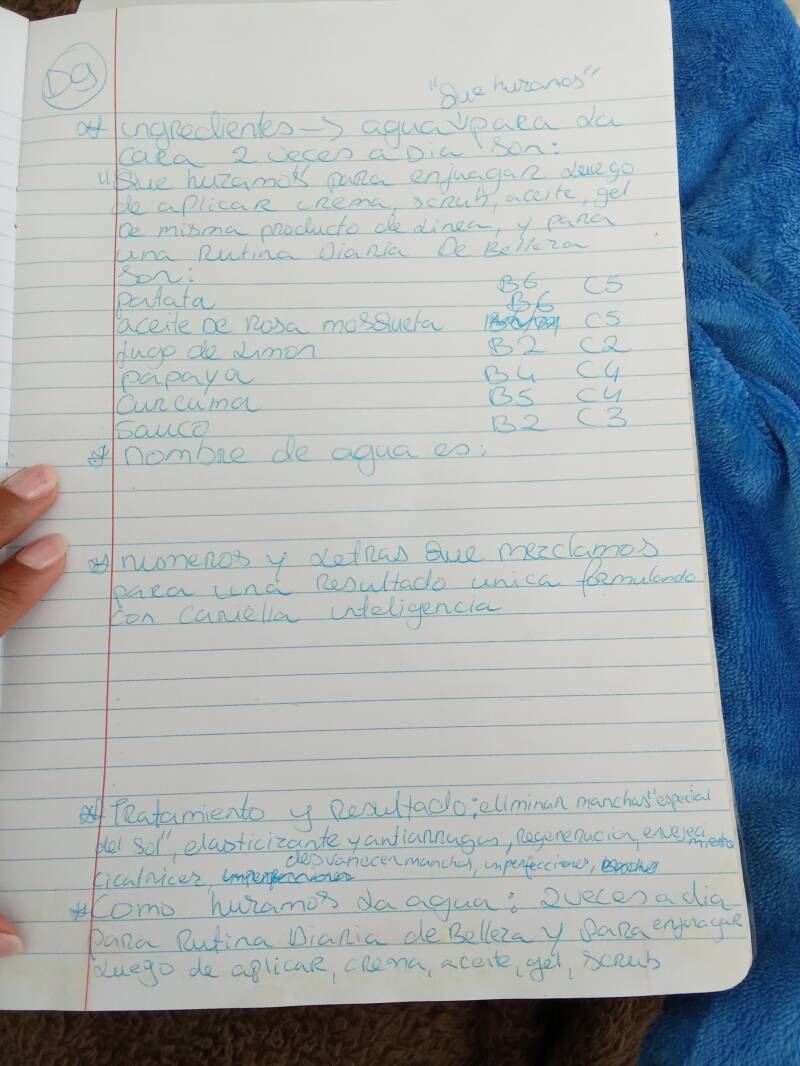 D9
"que huramos"
ingredientes → agua para la
cara 2 veces a Dia son:
"Que huramos" para enjuagar luego
de aplicar crema, scrub, aceite, gel
De misma producto de linea, y para
una Rutina Diaria De Belleza
son:
patata B6 C5
aceite De Rosa mosqueta B6 C5
jugo de limon B2 C2
papaya B4 C4
curcuma B5 C4
sauco B2 C3
nombre de agua es:
numeros y letras que mezclamos
para una resultado unica formulando
con inteligencia
Tratamiento y Resultado: eliminar manchas "especial
del sol", elasticizante y antiarrugas, Regeneracion,
desvanecer manchas, imperfecciones,
cicatrices,
Como huramos la agua: 2 veces a dia
para Rutina Diaria de Belleza y para enjuagar
luego de aplicar, crema, aceite, gel, scrub